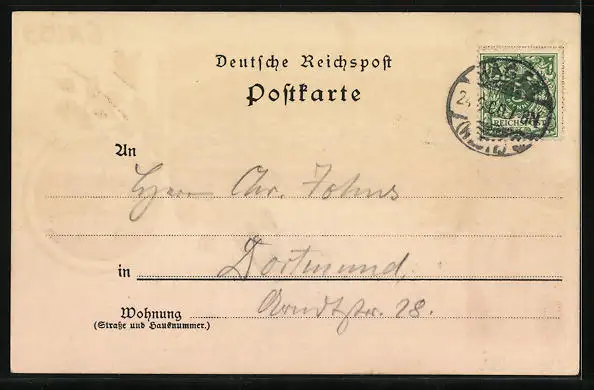 Deutsche Reichspost
Postkarte
REICHSPOST
An
Herrn Chr. Johns
in Dortmund,
Arndtstr. 28.
Wohnung
(Straße und Hausnummer.)